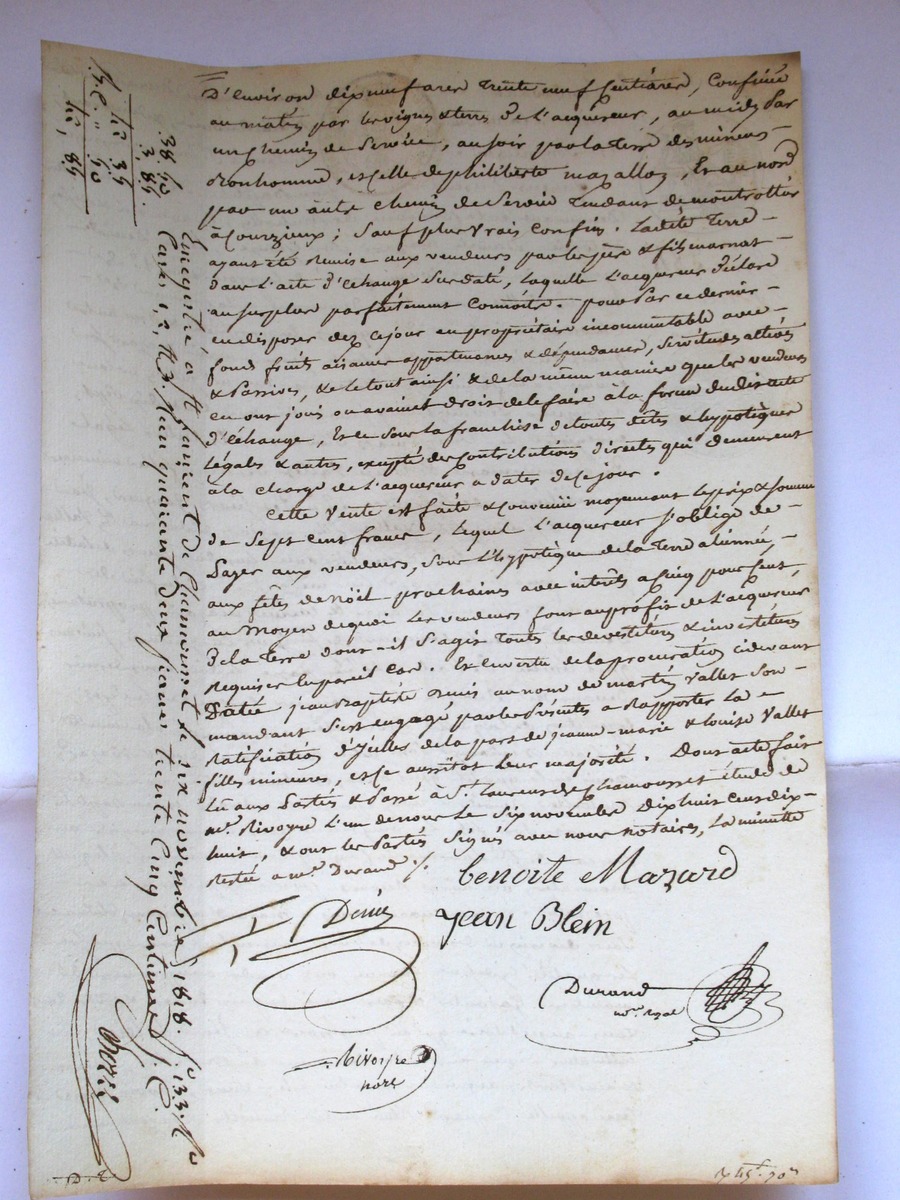 D'environ dix neuf ares trente neuf Centiares, Confinée
au matin par les vignes & terres de l'acquereur, au midy Par
un chemin de Service, au soir par la terre des mineurs
Bonhomme, et celle de philiberte mazallon, Et au nord
par un autre chemin de Service Tendant de montrottier
à Courzieux ; Sauf plus vrais Confins. Laditte Terre
ayant été Remise aux vendeurs par les père & fils marnat
Dans l'acte d'échange Sus daté, laquelle l'acquereur Déclare
au surplus parfaitement Connoitre. pour Par ce dernier
en disposer dez ce jour en propriétaire incommutable avec
fond fruits aisances appartenances & dépendances, Servitudes actives
& Passives, & le tout ainsi & de la même manière que les vendeurs
en ont joui ou avaient droit de le faire à la forme dudit acte
d'échange, Et ce Sous la franchise de touts dêtes & hypotèques
Légales & autres, excepté des Contributions directs qui demeurent
à la charge de l'acquereur a dater de ce jour.
Cette Vente est faite & Convenüe moyennant le prix & somme
de Sept Cent francs, lequel l'acquereur s'oblige de
Payer aux vendeurs, Sous l'hypotèque de la Terre alienée,
aux fêtes de Nöel prochaines avec intérêts a Cinq pour Cent,
au moyen de quoi les vendeurs font au profit de l'acquereur
De la Terre dont il S'agit Touts les devestitures & investitures
Requises en pareil Cas. Et en vertu de la procuration cidevant
Datée jean Baptiste au nom de martin Vallet Son
mandant S'est engagé par les Présentes a Rapporter la
Ratification d'ycelles de la part de jeanne-marie & louise Vallet
filles mineures, et ce aussitot leur majorité. Dont acte fait
Lu aux Parties & Passé à St. Laurent de Chamousset étude de
me. Rivoyre l'un de nous Le Six novembre Dix huit Cent dix
huit, & ont les Parties Signés avec nous notaires, la minutte
Restée a me. Durand ./.
benoite Mazard
jean Blein
Durand
nore Royal
Rivoyre
nore
Enregistré à St. Laurent de Chamousset le six novembre 1818. fo. 133. Ro
Cases 1, 2, & 3. Reçu quarante deux francs trente Cinq Centimes
38 50
3, 85
42 35
" 50
42, 85